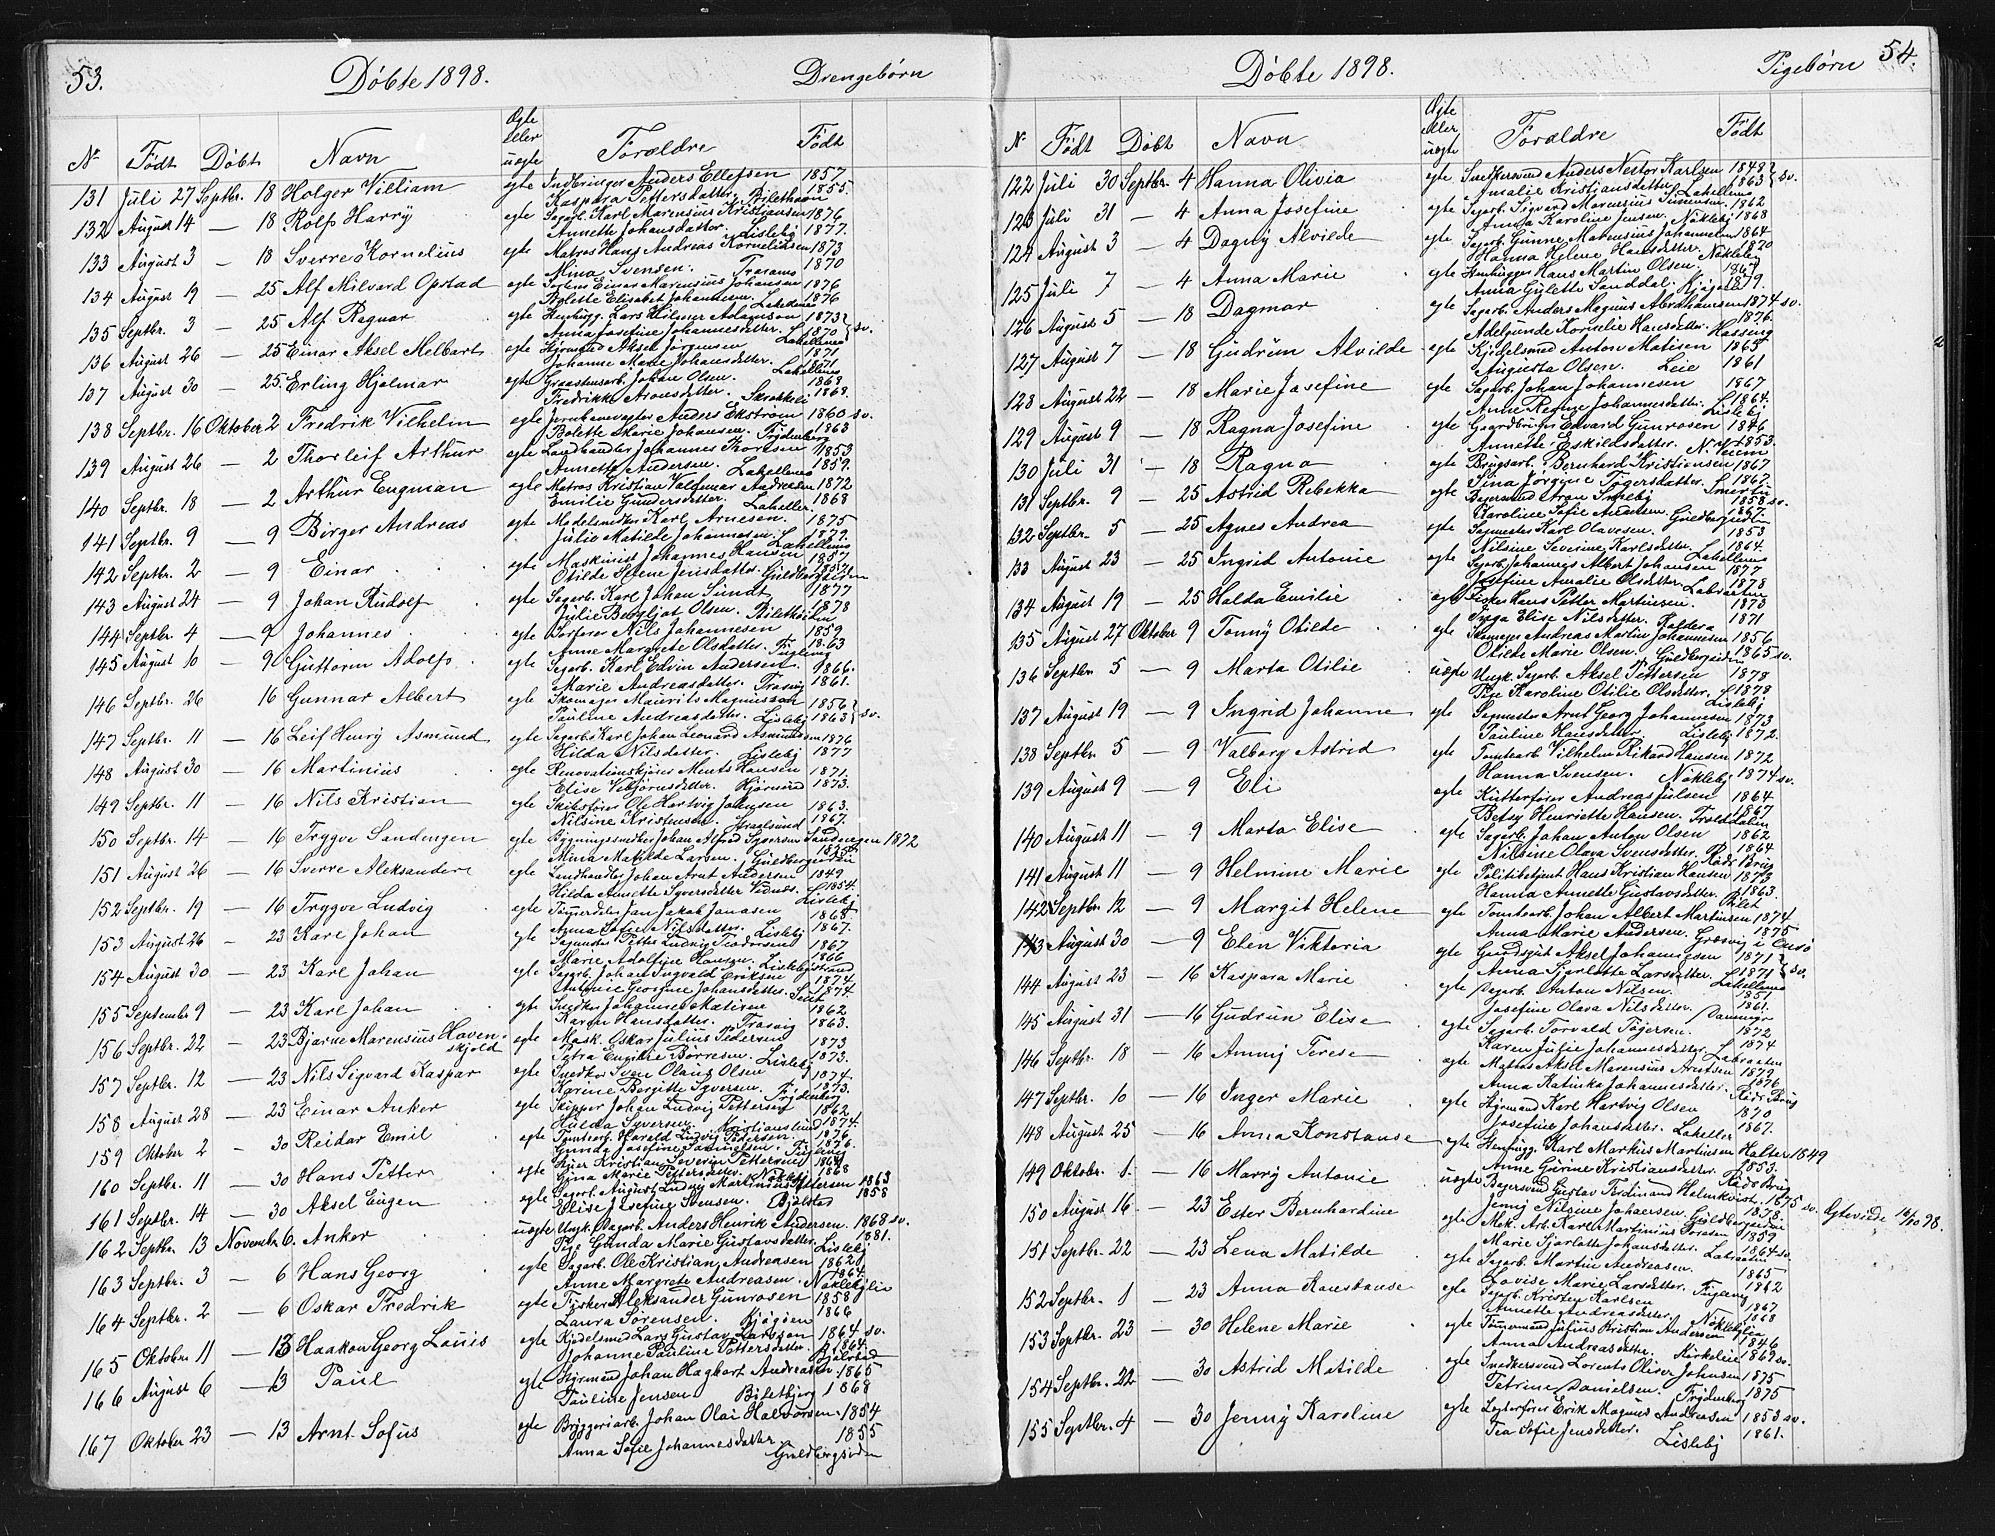 53.
Döbte 1898.
Drengebørn
Nr Født Döbt Navn Ægte eller uægte Forældre Født
131 Juli 27 Septbr. 18 Holger Villiam egte Indbringer Anders Ellefsen 1857
Kaspara Pettersdatter. 1855
132 August 14 — 18 Rolf Harry egte Sagarb. Karl Marensius Kristiansen 1876
Annette Johansdatter. Lisleby 1877.
133 August 3 — 18 Sverre Kornelius egte Matros Hans Andreas Korneliussen 1873
Mina Svensen. Trosvig 1870
134 August 19 — 25 Alf Milvard Opstad egte Einar Marensius Johansen 1876
Elisabet Johannesen. Lahellen 1876
135 Septbr. 3 — 25 Alf Ragnar egte Stenhugg. Lars Hilmar Adamson 1873
Anna Josefine Johannesdatter. Lahellen 1870 sv.
136 August 26 — 25 Einar Aksel Helbart egte Styrmand Aksel Jørgensen
Johanne Marie Johansdatter. Lahellen 1871
137 August 30 — 25 Erling Hjalmar egte Graastensarb. Johan Olsen. 1868
Fredrikke Arnesdatter. 1868
138 Septbr. 16 Oktober 2 Fredrik Vilhelm egte Jernbanevogter Anders Ekström 1860 sv.
Bolette Marie Johansen. Frydenberg 1863
139 August 26 — 2 Thorleif Arthur egte Landhandler Johannes Thoresen 1853
Annette Andersen. Lahellen 1859.
140 Septbr. 18 — 2 Arthur Engman egte Matros Kristian Valdemar Andresen 1872
Emilie Gundersdatter. Lahellen 1868
141 Septbr. 9 — 9 Birger Andreas egte Modelsnedker Karl Arnesen. 1875
Julie Matilde Johannesen. Lahellen 1877.
142 Septbr. 2 — 9 Einar egte Maskinist Johannes Hansen 1857
Otilde Helene Jensdatter. Guldbergsiden 1852
143 August 24 — 9 Johan Rudolf egte Sagarb. Karl Johan Sundt 1877
Julie Bergljot Olsen. 1878
144 Septbr. 4 — 9 Johannes egte Nils Johannesen 1859
Anne Margrete Olsdatter. Fuglevig 1863
145 August 10 — 9 Guttorm Adolf egte Sagarb. Karl Edvin Andersen. 1866.
Marie Andreasdatter. Trosvig 1861.
146 Septbr. 26 16 Gunnar Albert egte Skomager Maurits Magnussen 1856
Pauline Andreasdatter. Lisleby 1863 sv.
147 Septbr. 11 — 16 Leif Henry Asmund egte Sagarb. Karl Johan Leonard Asmundsen 1876
Hilda Nilsdatter. Lisleby 1877
148 August 30 — 16 Martinius egte Renovationskjører Ments Hansen 1871
Elise Vibjørnsdatter. 1873.
149 Septbr. 11 — 16 Nils Kristian egte Skibsfører Ole Hartvig Johansen 1863.
Nilsine Kristensen. Stralsund 1867.
150 Septbr. 14 — 16 Trygve Sandengen egte Bygningssnedker Johan Alfred Syversen Sandengen 1872
Mina Matilde Larsen. Guldbergsiden
151 August 26 — 16 Sverre Aleksander egte Landhandler Johan Arnt Andersen 1849
Hilda Annette Syversdatter 1854.
152 Septbr. 19 — 16 Trygve Ludvig egte Jan Jakob Janasen Lisleby 1865
Anna Sofie Nilsdatter. Lisleby 1867.
153 August 26 - 23 Karl Johan egte Sagmester Petter Ludvig Teodorsen 1867
Marie Adolfine Hansen. Lislebystrand 1866
154 August 30 — 23 Karl Johan egte Sagarb. Johan Ingvald Eriksen 1874
Antonie Georgine Johansdatter. 1874.
155 September 9 — 23 Karl Johan egte Snedker Johannes Matisen 1862
Karen Hansdatter. Trosvig 1863.
156 Septbr. 22 — 23 Bjarne Marensius Haven- skjold egte Mask. Oskar Julius Pedersen 1873
Petra Børresen. Lisleby 1873.
157 Septbr. 12 — 23 Nils Sigvard Kaspar egte Snedker Sven Olaus Olsen 1874.
Karine Bergitte Syversen. Frydenberg 1873.
158 August 28 — 23 Einar Anker egte Skipper Johan Ludvig Pettersen 1862
Hulda Syversen. Kristianslund 1874.
159 Oktober 2 — 30 Reidar Emil egte Tomtearb. Harald Ludvig Pedersen. 1876
Gunda Josefine Samuelsen. Fuglevig 1876.
160 Septbr. 11 — 30 Hans Petter egte Kristian Severin Pettersen 1864
Gina Marie Pettersdatter. 1868
161 Septbr. 14 — 30 Aksel Eugen egte Sagarb. August Ludvig Martinius Pettersen 1863
Elise Josefine Svensen. Bjølstad 1858
162 Septbr. 13 Novembr. 6. Anker uægte Ungk. Sagarb. Anders Henrik Andersen. 1868 sv.
Pige Gunda Marie Gustavsdatter. Lisleby 1881.
163 Septbr. 3 — 6 Hans Georg egte Sagarb. Ole Kristian Andreasen 1862
Anne Margrete Andreasen. Nøkleby 1864
164 Septbr. 2 — 6 Oskar Fredrik egte Fisker Aleksander Gunrosen 1858
Laura Sørensen. Kjøgsen 1866
165 Oktober 11 — 13 Haakon Georg Louis egte Kjedelsmed Lars Gustav Larsson 1864. sv.
Johanne Pauline Pettersdatter. 1864.
166 August 6 — 13 Paul egte Styrmand Johan Hagbart Andreasen. 1865
Pauline Jensen Biletbjerg 1868
167 Oktober 23 — 13 Arnt Sofus egte Bryggeriarb. Johan Olai Halvorsen. 1854
Anna Sofie Johannesdatter Guldbergsiden 1855
54.
Döbte 1898.
Pigebørn
Nr Født Döbt Navn Ægte eller uægte Forældre Født
122 Juli 30 Septbr. 4 Hanna Olivia egte Snedkersvend Anders Nestor Karlsen 1848
Amalie Kristiansdatter. Lahellen 1863 sv.
123 Juli 31 — 4 Anna Josefine egte Sagarb. Sigvard Marensius Simensen. 1862
Anna Karoline Jensen. Nøkleby 1868
124 August 3 — 4 Dagny Alvilde egte Sagarb. Gunne Marensius Johannesen 1864
Hanna Helene Hansdatter. Nøkleby 1870
125 Juli 7 — 4 Anna Marie egte Stenhugger Hans Martin Olsen.
Anna Gulette Sanddal. 1879.
126 August 5 — 18 Dagmar egte Sagarb. Anders Magnus Abrahamsen 1874 sv.
Adelgunde Kornelie Hansdatter. Hassing 1876.
127 August 7 — 18 Gudrun Alvilde egte Kjedelsmed Anton Matisen 1865
Augusta Olsen. Leie 1861
128 August 22 18 Marie Josefine egte Sagarb. Johan Johannesen 1867
Anne Regine Johannesdatter. Lisleby 1864.
129 August 9 — 18 Ragna Josefine egte Gaardbruger Edvard Gunrosen 1846
Annette Eskildsdatter. 1853.
130 Juli 31 — 18 Ragna egte Brugsarb. Bernhard Kristiansen 1867
Sina Jørgine Tögersdatter. Smertu 1867.
131 Septbr. 9 — 25 Astrid Rebekka egte Bagersvend Aron Smeby 1858 sv.
Karoline Sofie Andersen. Guldbergsiden 1867.
132 Septbr. 5 — 25 Agnes Andrea egte Sagmester Karl Olavesen. 1853
Nilsine Severine Karlsdatter. Lahellen 1864.
133 August 23 — 25 Ingrid Antonie egte Sagarb. Johannes Albert Johansen 1877
Josefine Amalie Olsdatter. Labraaten 1878
134 August 19 — 25 Halda Emilie egte Fisker Hans Petter Martinsen. 1873
Inga Elise Nilsdatter. 1871
135 August 27 Oktober 9 Tonny Otilde egte Skomager Andreas Martin Johannesen 1856
Otilde Marie Olsen. Guldbergsiden 1865 sv.
136 Septbr. 5 — 9 Marta Otilie uægte Ungk. Sagarb. Aksel Pettersen 1878
Pige Karoline Otilie Olsdatter. Lisleby 1878
137 August 19 — 9 Ingrid Johanne egte Sagmester Arnt Georg Johannesen 1873
Pauline Hansdatter. Lisleby 1872.
138 Septbr. 5 — 9 Valborg Astrid egte Tomtearb. Vilhelm Rikard Hansen 1872
Hanna Svensen. Nøkleby 1874 sv.
139 August 9 — 9 Eli egte Kutterfører Andreas Julsen 1864.
Betsy Henriette Hansen. Trolddalen 1867
140 August 11 — 9 Marta Elise egte Sagarb. Johan Anton Olsen 1862
Nilsine Olava Svensdatter. Röds Brug 1864
141 August 11 — 9 Helmine Marie egte Politibetjent Hans Kristian Hansen 1873
Hanna Annette Gustavsdatter. Bilet 1863.
142 Septbr. 12 — 9 Margit Helene egte Tomtearb. Johan Albert Martinsen 1874
Anna Marie Andersen. Græsvig i Onsö 1875
143 August 30 — 9 Elen Viktoria egte Gaardsgut Aksel Johannesen 1871
Anna Sjarlotte Larsdatter. Lahellen 1871 sv.
144 August 23 — 16 Kaspara Marie egte Sagarb. Anton Nilsen. 1851
Josefine Olava Nilsdatter. 1861.
145 August 31 — 16 Gudrun Elise egte Sagarb. Torvald Tögersen. 1872
Karen Julie Johannesdatter. Labraaten 1874
146 Septbr. 18 — 16 Anny Terese egte Matros Aksel Marensius Arntsen 1879
Anna Katinka Johannesdatter. Röds Brug 1876.
147 Septbr. 10 — 16 Inger Marie egte Styrmand Karl Hartvig Olsen 1870
Josefine Johansdatter. Lahellen 1867.
148 August 25 — 16 Anna Konstanse egte Stenhugg. Karl Markus Martinsen Halter 1849
Anne Gurine Kristiansdatter. Röds Brug 1853.
149 Oktobr. 1 — 16 Marry Antonie uægte Bagersvend Gustav Ferdinand Halmkvist. 1875 sv. Egteviede 16/10 98.
Jenny Nilsine Johansen. Guldbergsiden 1878
150 August 16 — 23 Ester Bernhardine egte Mek. Arb. Karl Martinius Toresen 1859
Marie Sjarlotte Johansdatter. Labraaten 1864 sv.
151 Septbr. 22 — 23 Lena Matilde egte Sagarb. Martin Andreasen. 1865
Lovise Marie Larsdatter. Fuglevig 1862
152 Septbr. 1 — 23 Anna Konstanse egte Sagarb. Kristen Karlsen 1867
Annette Andreasdatter. Nøkleby 1868
153 Septbr. 23 — 30 Helene Marie egte Tømmermand Julius Kristian Andersen 1846
Anna Andreasdatter. Kirkeleie 1862 sv.
154 Septbr. 22 — 30 Astrid Matilde egte Snedkersvend Lorents Oliver Johnsen 1875
Petrine Danielsen. Frydenberg 1875
155 Septbr. 4 — 30 Jenny Karoline egte Lægterfører Erik Magnus Andreasen 1853 sv.
Tea Sofie Jensdatter. Lisleby 1861.